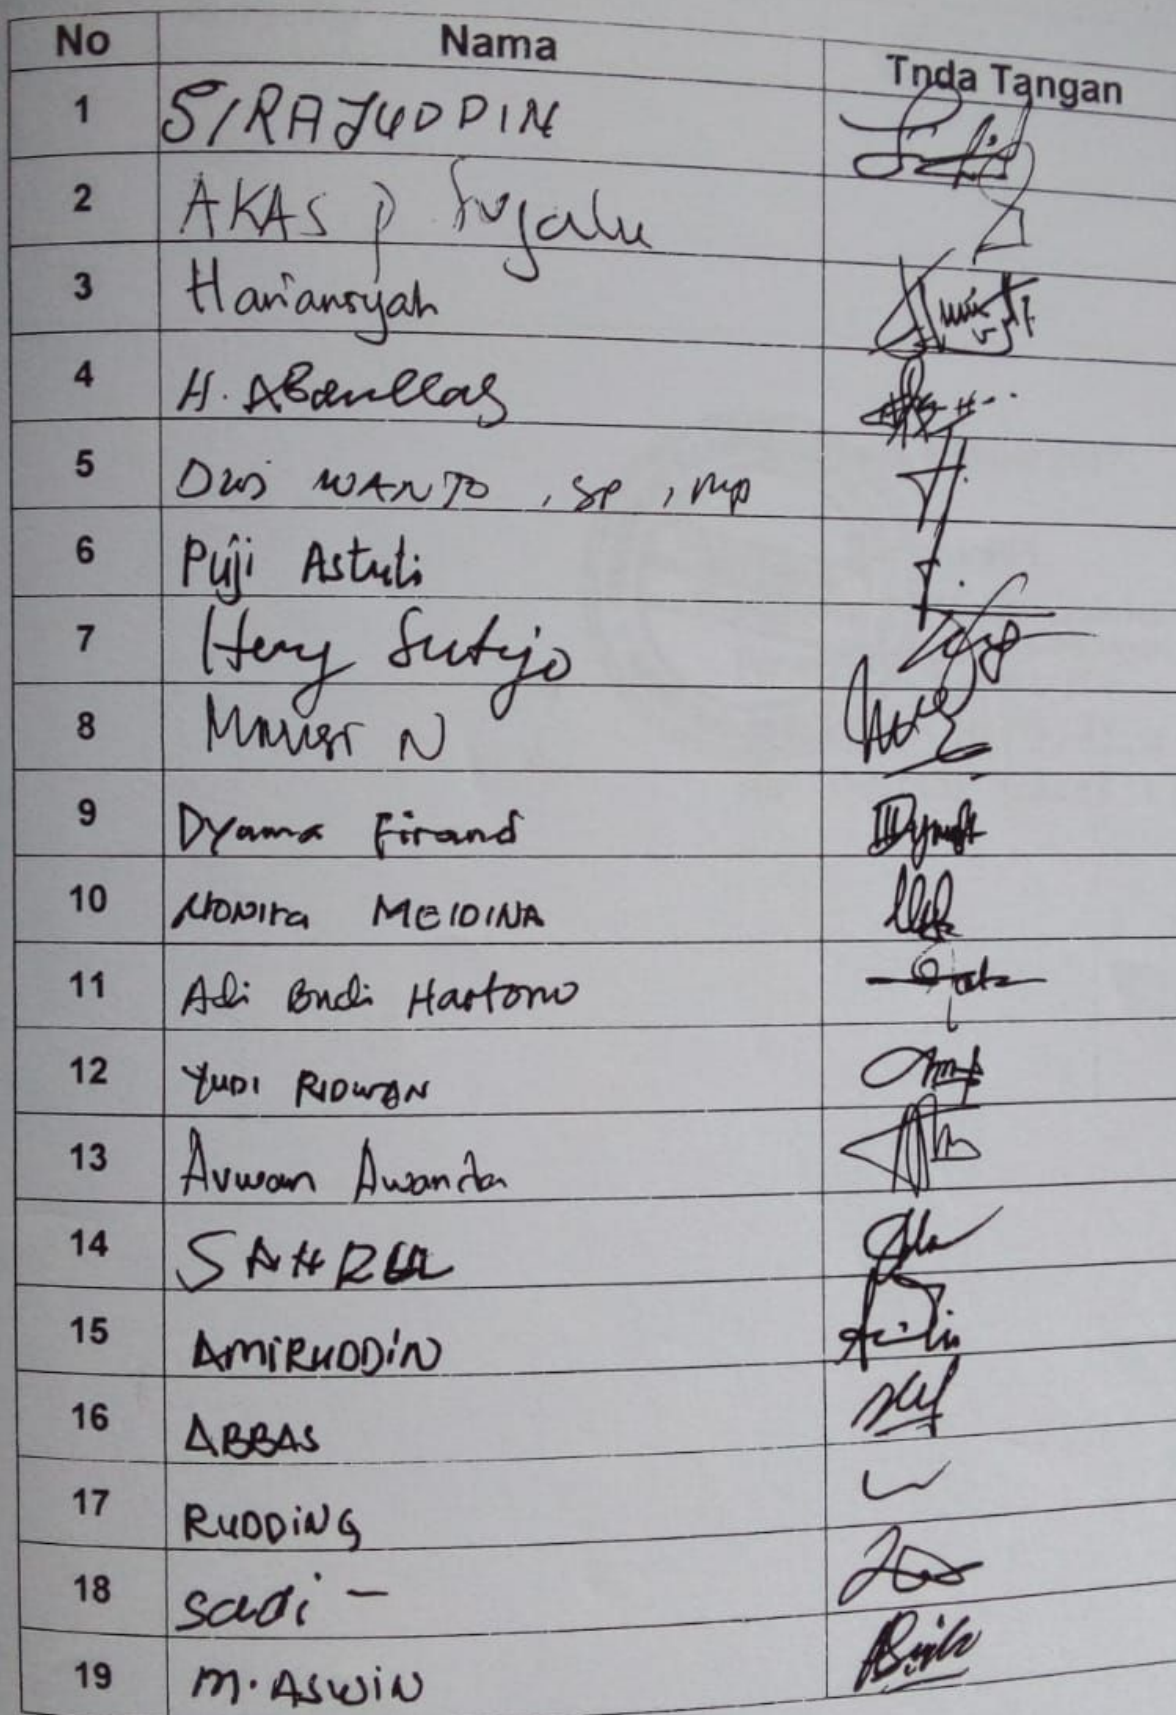 No Nama Tnda Tangan
1 SIRAJUDDIN
2 AKAS P
3 Hariansyah
4 H. Abdullah
5 Dwi WANTO, SP, MP
6 Puji Astuti
7 Hery Sutijo
8 N
9 Dyama Firand
10 NONITA MEIDINA
11 Adi Budi Hartono
12 YUDI RIDWAN
13 Avwan Awanda
14 SAHRUL
15 AMIRUDDIN
16 ABBAS
17 RUDDING
18 sadi -
19 M. ASWIN